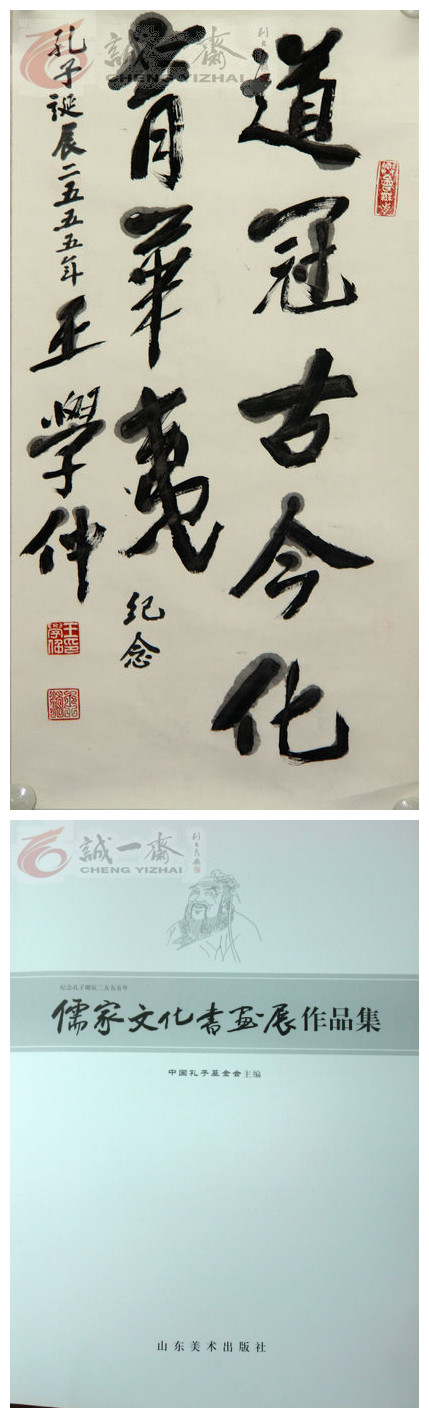 誠一齋
CHENG YIZHAI
道冠古今化
育華夷
纪念
孔子诞辰二五五五年
王學仲
王印
學仲
誠一齋
CHENG YIZHAI
纪念孔子诞辰二五五五年
儒家文化書画展作品集
中国孔子基金会主编
山东美术出版社